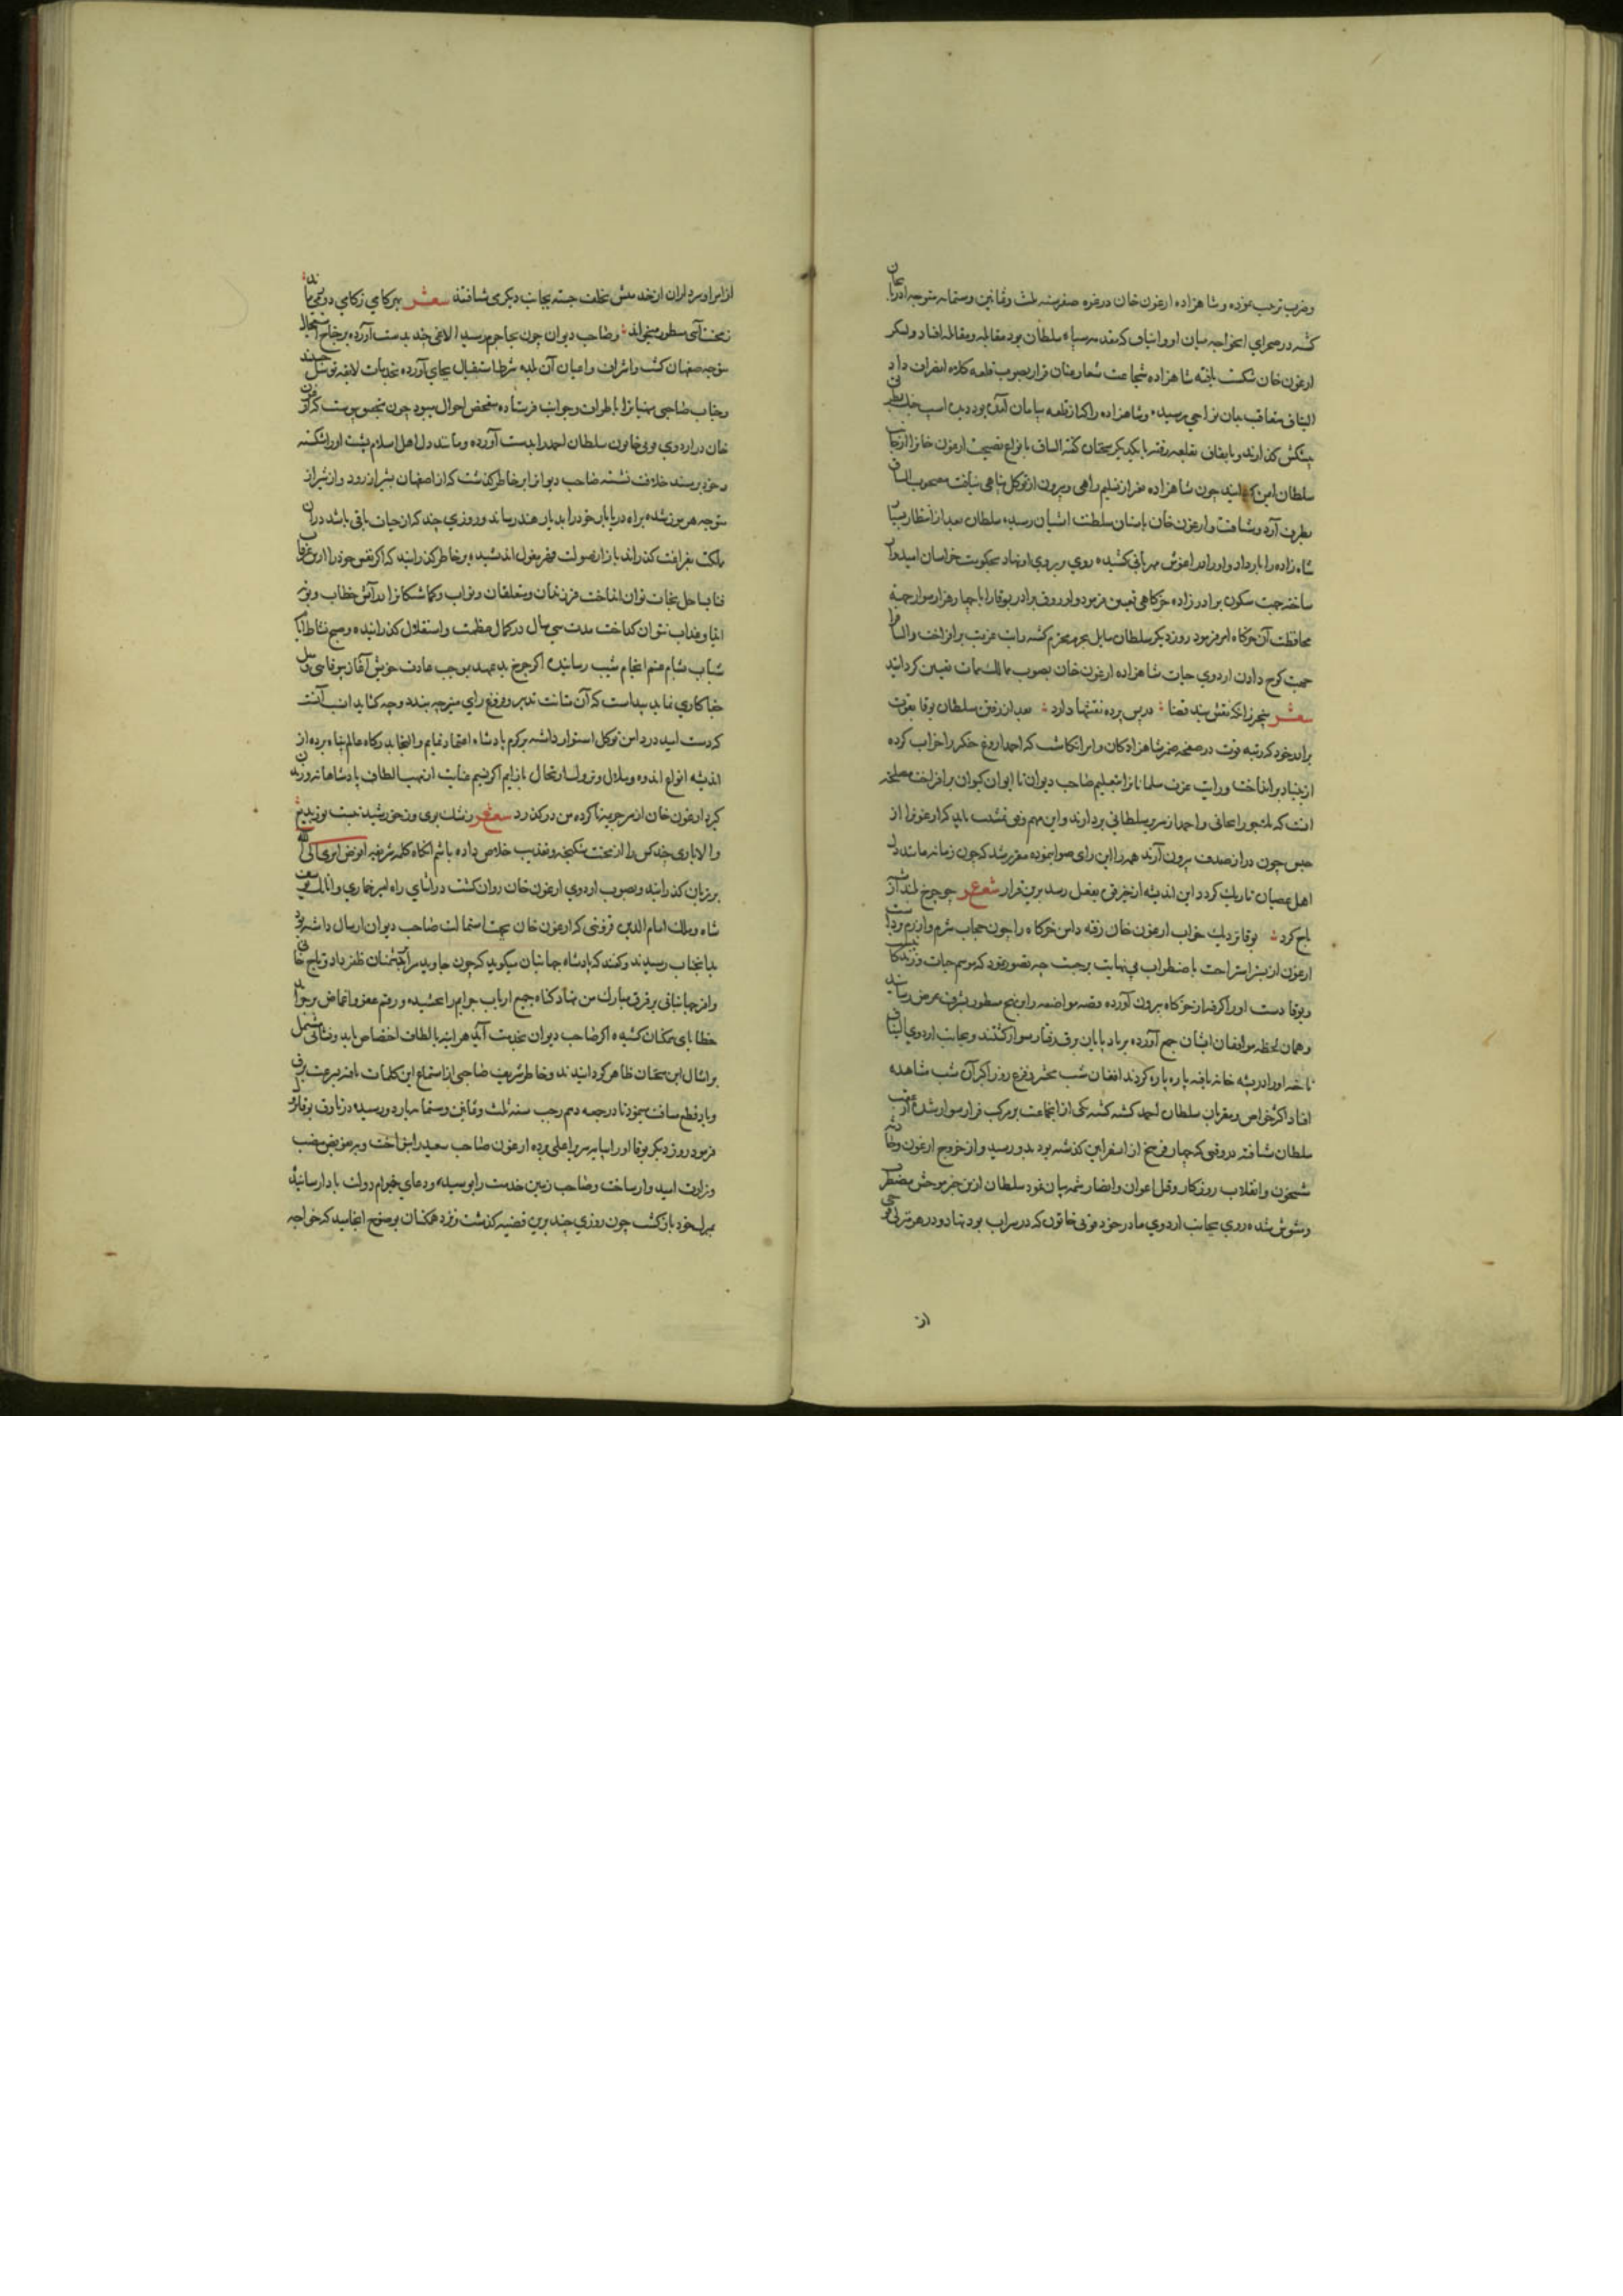 وحرب ترحیب نموده وشاهزاده ارغون خان درغره صفر سنه ثلث وثمانین وستمایه متوجه اذربایجان
کشته در صحرای اقخواجه میان او والیناق که مقدمه سپاه سلطان بود مقابله ومقاتله افتاد ولشکر
ارغون خان شکست یافته شاهزاده شجاعت شعار عنان فرار بصوب قلعه کلاه انصراف داد
الیناق متعاقب بدان نواحی رسیده وشاهزاده را که از قلعه بپایان آمده بود دیده اسپ
پیشکش کذرانید وباتفاق بقلعه رفته با یکدیکر سخنان کفته الیناق بانواع نصیحت ارغون خانرا از جانب
سلطان ایمن کردانید چون شاهزاده مفر از تسلیم راهی وبیرون از توکل پناهی نیافت مصحوب الیناق
بطرف آرد وشتافت وارغون خان باستان سلطنت آشیان رسیده سلطان بعد از انتظار بسیار
شاه زاده را بار داد واورا در اغوش مهربانی کشیده روی بر روی او نهاد بحکومت خراسان امیدوار
ساخته جهت سکون برادر زاده خرکاهی تعیین فرمود واروق برادر بوقا را با چهار هزار سوار جهة
محافظت آن خرکاه امر فرمود روز دیکر سلطان مایل بحرم محترم کشته رایت عزیمت برافراخت والیناق را
جهت کوچ دادن اردوی حیات شاهزاده ارغون خان بصوب ممات تعیین کردانید
شعر بیخبر زانکه نقش بند قضا درپس پرده نقشها دارد بعد از رفتن سلطان بوقا بقوت
برادر خود که رتبه فوت در صفحه ضمیر شاهزادکان وامرا نکاشت که احمد اروغ جنکیز را خراب کرده
از بنیاد برانداخت ورایت عزت مسلمانانرا بتعلیم صاحب دیوان تا ایوان کیوان برافراخت مصلحة
انست که بشبخون را بجانی واحمد از سریر سلطانی بردارند واین مهم وقتی تمشیت یابد که ارغونرا از
حبس چون در از صدف بیرون آرند همه را این رای صواب نموده مقرر شد که چون زمانه مانند دل
اهل عصیان تاریک کردد این اندیشه از حیز قوت بفعل رسد برین قرار شعر چو چرخ بلند از شب
تاج کرد بوقا نزدیک خواب ارغون خان رفته دامن خرکاه را چون حجاب شرم وازرم برداشت
ارغون از بستر استراحت با ضطراب بی نهایت برجست چه تصور نمود که موسم حیات وزندکانی
وبوقا دست اورا کرفته از خرکاه بیرون آورده وقصه مواضعه را بنهج مسطور بشرف عرض رسانید
وهمان لحظه موافقان ایشان جمع آورده بر باد پایان برق رفتار سوار کشتند وبجانب اردوی الیناق
تاخته اورا در پشه خانه یافته پاره پاره کردند افغان شب محشر وفزع روز اکبر آن شب مشاهده
افتاد اکثر خواص ومقربان سلطان احمد کشته کشته یکی از انجماعت بر مرکب فرار سوار شده از عقب
سلطان شتافته در وقتی که چهار فرسخ از اسفراین کذشته بود بدو رسید واز خروج ارغون وحادثه
شبیخون وانقلاب روزکار وقتل اعوان وانصار شمه بیان نمود سلطان ازین خبر موحش مضطرب
ومشوش شده روی بجانب اردوی مادر خود قوتی خاتون که در سراب بود نهاد ودر هر منزلی فوجی
از
از امرا وسرداران از خدمتش تخلف جسته بجانب دیکری شتافتند شعر بهر کامی زکامی دور می ماند
زتخت آسی سطور میخواند وصاحب دیوان چون بجاجرم رسید الاغی چند بدست آورده بر جناح استعجال
متوجه صفهان کشت واشراف واعیان آن بلده شرط استقبال بجای آورده بخدمات لایقه توسل جستند
وجناب صاحبی منهیانرا باطراف وجوانب فرستاده متفحص احوال میبود چون بتحقیق پیوست که ارغون
خان در اردوی قوتی خاتون سلطان احمد را بدست آورده ومانند دل اهل اسلام پشت اورا شکسته
وخود بر مسند خلافت نشسته صاحب دیوانرا بر خاطر کذشت که از اصفهان بشیراز رود واز شیراز
متوجه هرموز شده براه دریابار خود را بدیار هند رساند وروزی چند که از حیات باقی باشد دران
ملکت بفراغت کذراند باز از صولت قهر مغول اندیشیده بر خاطر کذرانید که اکر نفس خود را ازین غرقاب
فنا بساحل نجات توان انداخت فرزندان ومتعلقان ونواب وکماشتکانرا در آتش خطاب وبوته
ایذا وعذاب نتوان کداخت مدت سی سال در کمال عظمت واستقلال کذرانیده وصبح نشاط ایام
شباب بشام غم انجام شیب رسانیده اکر چرخ بد عهد بموجب عادت خویش آغاز بیوفائی ومیل
جفا کاری نماید پیداست که آن متانت تدبیر وفروغ رای منیر چه بندد وچه کشاید انسب آنست
که دست امید در دامن توکل استوار داشته بر کرم بادشاه اعتماد نمایم والتجا بدرکاه عالم پناه برده از
اندیشه انواع اندوه وملال ونزول وارتحال باز ایم اکر نسیم عنایت از مهب الطاف پادشاهانه وزیدن
کیرد ارغون خان از سر جریمه ناکرده من درکذرد شعر
والا باری چند کس را از محنت شکنجه وتعذیب خلاص داده باشم انکاه کلمه شریفه افوض امری الی الله
بر زبان کذرانید وبصوب اردوی ارغون خان روان کشت در اثنای راه امیر خماری واتابک یوسف
شاه وملک امام الدین قزوینی که ارغون خان بجهت استمالت صاحب دیوان ارسال داشته بود
بدانجناب رسیدند وکفتند که پادشاه جهانیان میکوید که چون جاوید مرا بر دشمنان ظفر داد وتاج خانی
وافسر جهانبانی بر فرق مبارک من نهاد کناه جمیع ارباب جرایم را بخشیده ورقم عفو واغماض بر جراید
خطایای همکنان کشیده اکر صاحب دیوان بخدمت آید هر اینه بالطاف اختصاص یابد
بر امثال این سخنان ظاهر کردانیدند وخاطر شریف صاحبی از استماع این کلمات یافته بسرعت برق
وباد قطع مسافت مینمود تا در جمعه دهم رجب سنه ثلث وثمانین وستمایه باردو رسیده در وثاق بوقا نزول
فرمود روز دیکر بوقا اورا بپایه سریر اعلی برده ارغون صاحب سعید را بنواخت وبه تفویض منصب
وزارت امیدوار ساخت وصاحب زمین خدمت را بوسیده ودعای دوام دولت بادا رسانیده
بمنزل خود بازکشت چون روزی چند برین قضیه کذشت ونزد همکنان بوضوح انجامید که خواجه